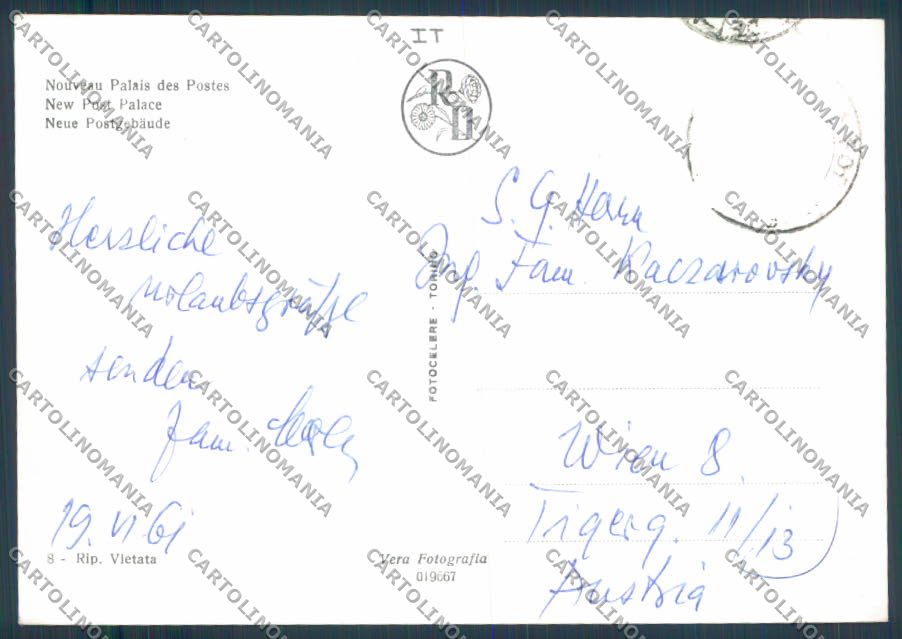 IT
Nouveau Palais des Postes
New Post Palace
Neue Postgebäude
RD
Herzliche
Urlaubsgrüße
senden
Fam.
19. VI 61
8 - Rip. Vietata
FOTOCELERE - TORINO
Vera Fotografia
019667
S. G. Herrn
Ing. Fam. Kaczarovsky
Wien 8.
Tigerg. 11/13
Austria
CARTOLINOMANIA